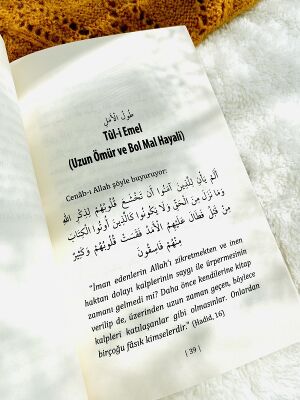 طُولُ الْاَمَلِ
Tûl-i Emel
(Uzun Ömür ve Bol Mal Hayali)
Cenâb-ı Allah şöyle buyuruyor:
اَلَمْ يَأْنِ لِلَّذِينَ آمَنُوا أَنْ تَخْشَعَ قُلُوبُهُمْ لِذِكْرِ اللّٰهِ
وَمَا نَزَلَ مِنَ الْحَقِّ وَلَا يَكُونُوا كَالَّذِينَ أُوتُوا الْكِتَابَ
مِنْ قَبْلُ فَطَالَ عَلَيْهِمُ الْأَمَدُ فَقَسَتْ قُلُوبُهُمْ وَكَثِيرٌ
مِنْهُمْ فَاسِقُونَ
"İman edenlerin Allah'ı zikretmekten ve inen
haktan dolayı kalplerinin saygı ile ürpermesinin
zamanı gelmedi mi? Daha önce kendilerine kitap
verilip de, üzerinden uzun zaman geçen, böylece
kalpleri katılaşanlar gibi olmasınlar. Onlardan
birçoğu fâsık kimselerdir." (Hadid, 16)
| 39 |